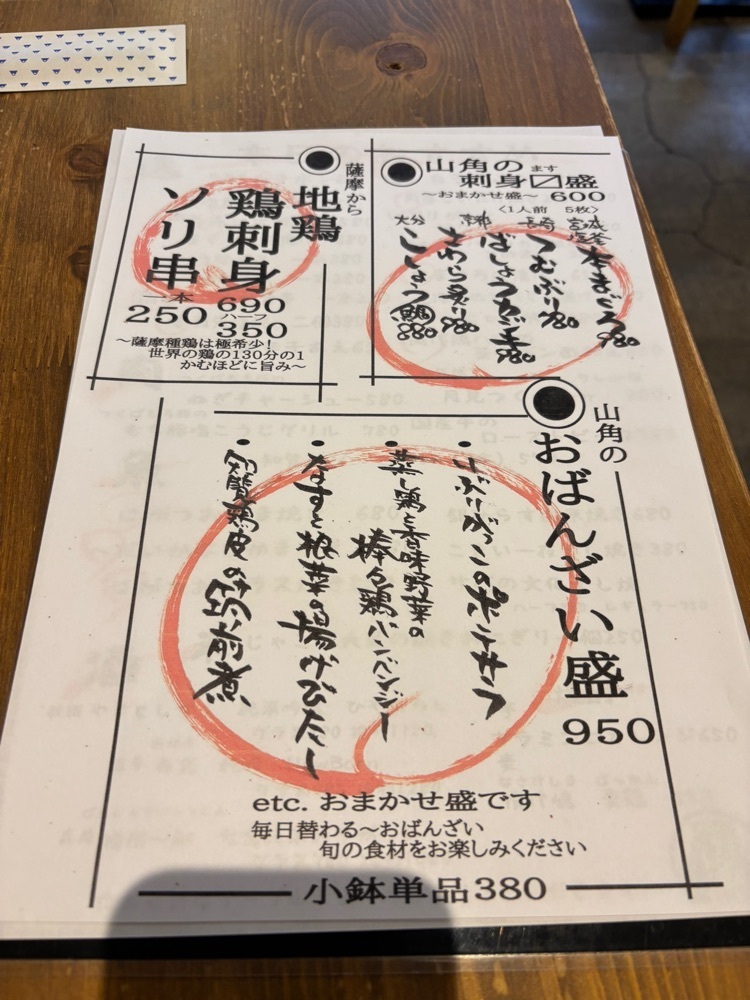 山角の ます
刺身〼盛
〜おまかせ盛〜 600
〈1人前 5枚〉
本まぐろ 980
長崎
つむぶり 980
ばしょうカジキ 980
さわら炙り 980
大分
こしょう鯛 880
薩摩から
地鶏
鶏刺身
690
ハーフ
350
ソリ串
一本
250
〜薩摩種鶏は極希少!
世界の鶏の130分の1
かむほどに旨み〜
山角の
おばんざい盛
950
・いぶりがっこのポテサラ
・蒸し鶏と香味野菜の
棒々鶏バンバンジー
・なすと根菜の揚げびたし
・鶏皮の筑前煮
etc. おまかせ盛です
毎日替わる〜おばんざい
旬の食材をお楽しみください
小鉢単品380